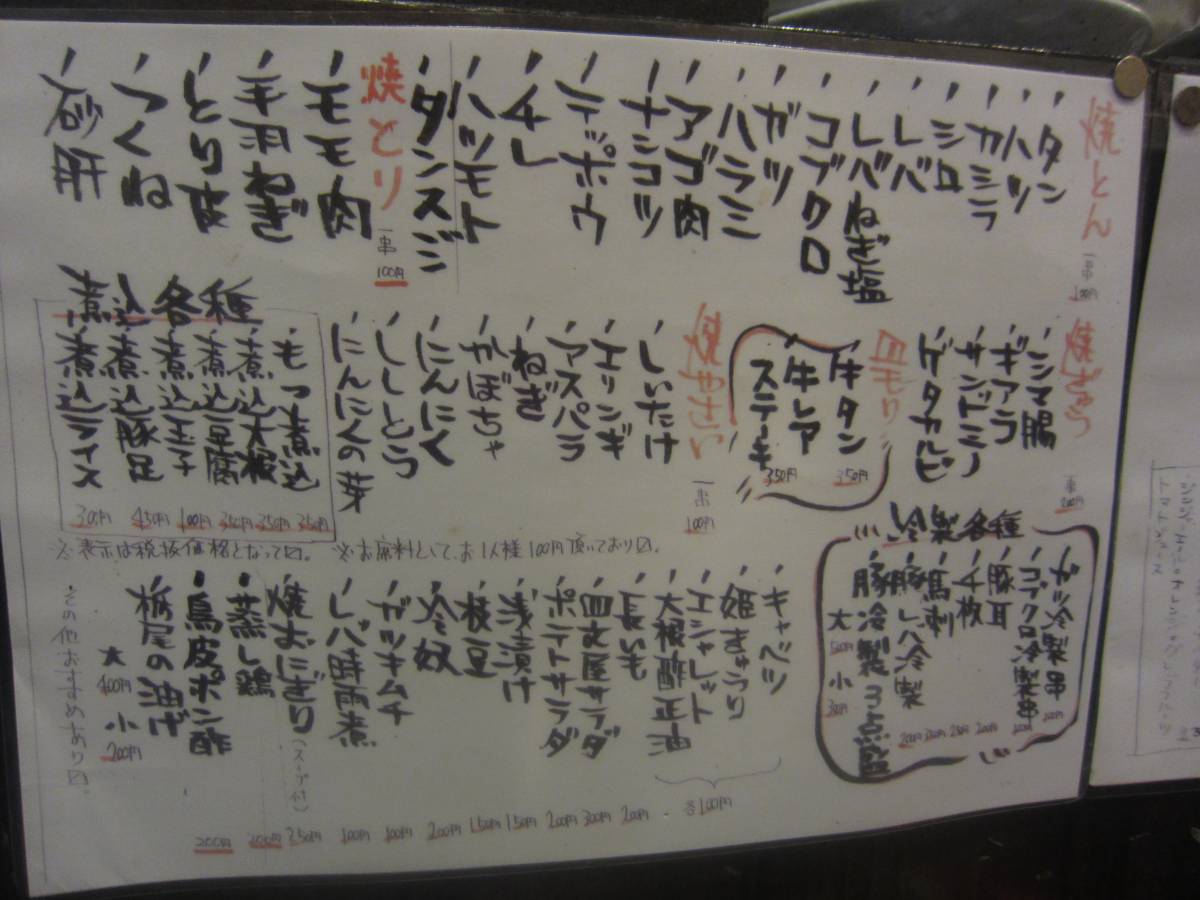 焼とん 一串 100円
タン
ハツ
カシラ
シロ
レバ
レバねぎ塩
コブクロ
ガツ
ハラミ
アゴ肉
ナンコツ
テッポウ
チレ
ハツモト
タンスジ
焼とり 一串 100円
モモ肉
手羽ねぎ
とり皮
つくね
砂肝
焼ぎゅう 一串 200円
シマ腸
ギアラ
サンドミノ
ゲタカルビ
皿モリ
牛タン 350円
牛レアステーキ 350円
焼やさい 一串 100円
しいたけ
エリンギ
アスパラ
ねぎ
かぼちゃ
にんにく
ししとう
にんにくの芽
煮込各種
もつ煮込 350円
煮込大根 350円
煮込豆腐 350円
煮込玉子 100円
煮込豚足 450円
煮込ライス 300円
※表示は税抜価格となって〼。 ※お席料として、お1人様100円頂いており〼。
冷製各種
ガツ冷製串
コブクロ冷製串
豚耳 200円
馬刺
豚レバ冷製
豚冷製3点盛 大 小
キャベツ
姫きゅうり
エシャレット
大根酢正油
各100円
長いも 200円
四文屋サラダ 300円
ポテトサラダ 200円
浅漬け 150円
枝豆 150円
冷奴 200円
ガツキムチ 100円
レバ時雨煮 100円
焼おにぎり(スープ付) 250円
蒸し鶏 200円
鳥皮ポン酢 200円
栃尾の油げ 大 400円 小 200円
その他おすすめあり〼。